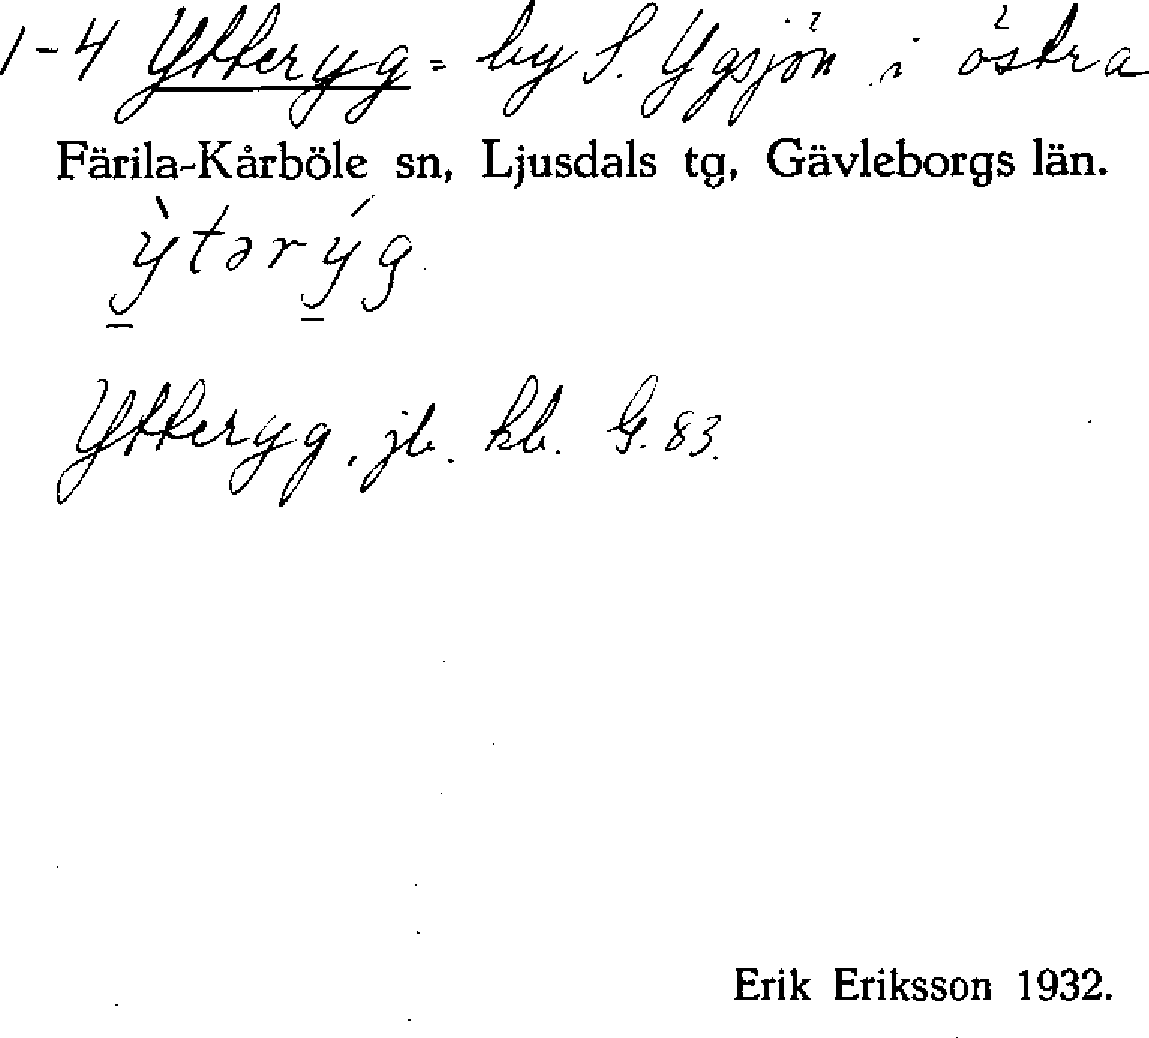 1-4 Ytteryg = by S. Ygsjön i östra
Färila-Kårböle sn, Ljusdals tg, Gävleborgs län.
ỳ̱tərý̱g.
Ytteryg, jb. kb. G. 83.
Erik Eriksson 1932.